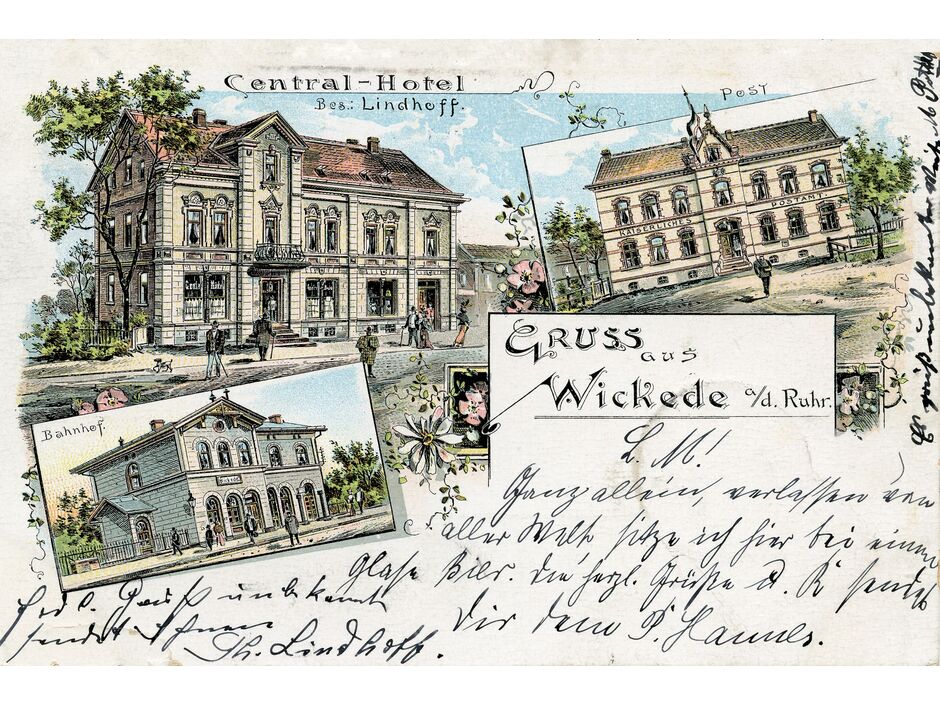 Central-Hotel
Bes.: Lindhoff.
Post
KAISERLICHES POSTAMT
Bahnhof.
Wickede
GRUSS aus
Wickede a/d. Ruhr.
L. M!
Ganz allein, verlassen von
aller Welt sitze ich hier bei einem
Glase Bier. Die herzl. Grüße
Dir dein P. Hannes.
Gruß unbekannt
sendet Ihnen
Th. Lindhoff.